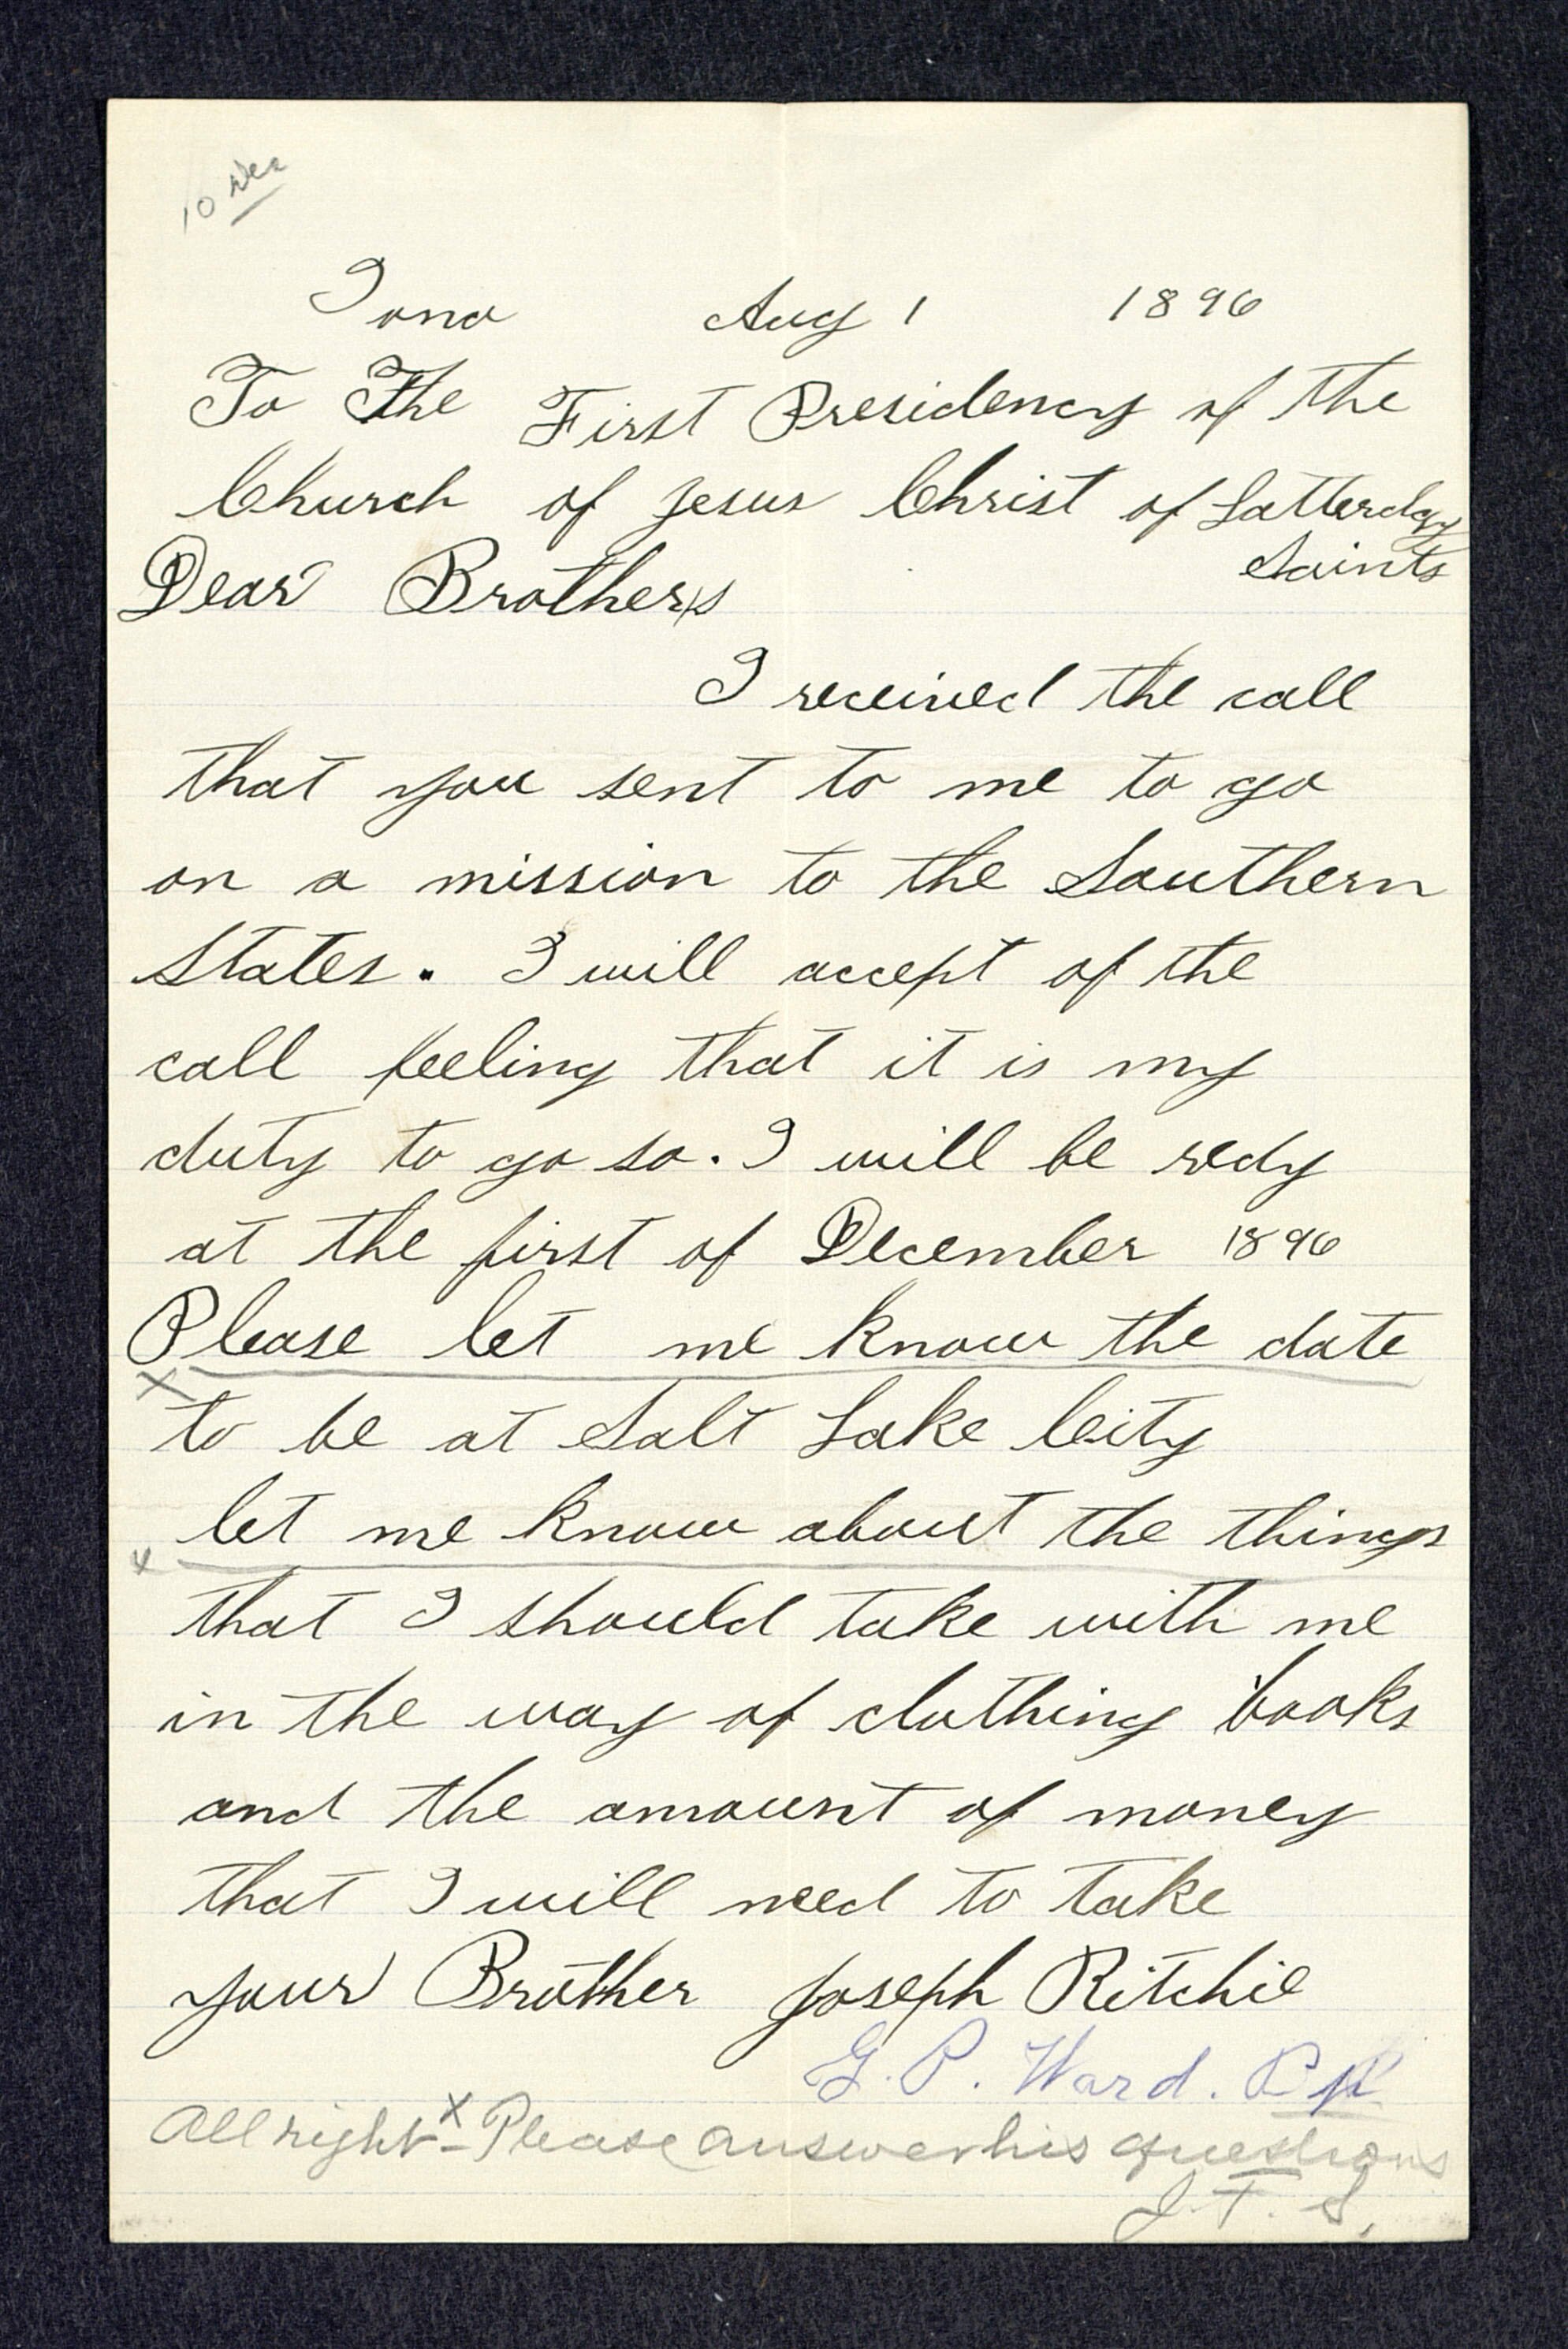 10 Dec
Iona Aug 1 1896
To The First Presidency of the
Church of Jesus Christ of Latterday
Saints
Dear Brothers
I received the call
that you sent to me to go
on a mission to the Southern
States. I will accept of the
call feeling that it is my
duty to go so. I will be redy
at the first of December 1896
Please let me know the date
x
to be at Salt Lake City
let me know about the things
x
that I should take with me
in the way of clothing books
and the amount of money
that I will need to take
your Brother Joseph Ritchie
G. P. Ward.
All right x - Please answer his questions
J. F. S.